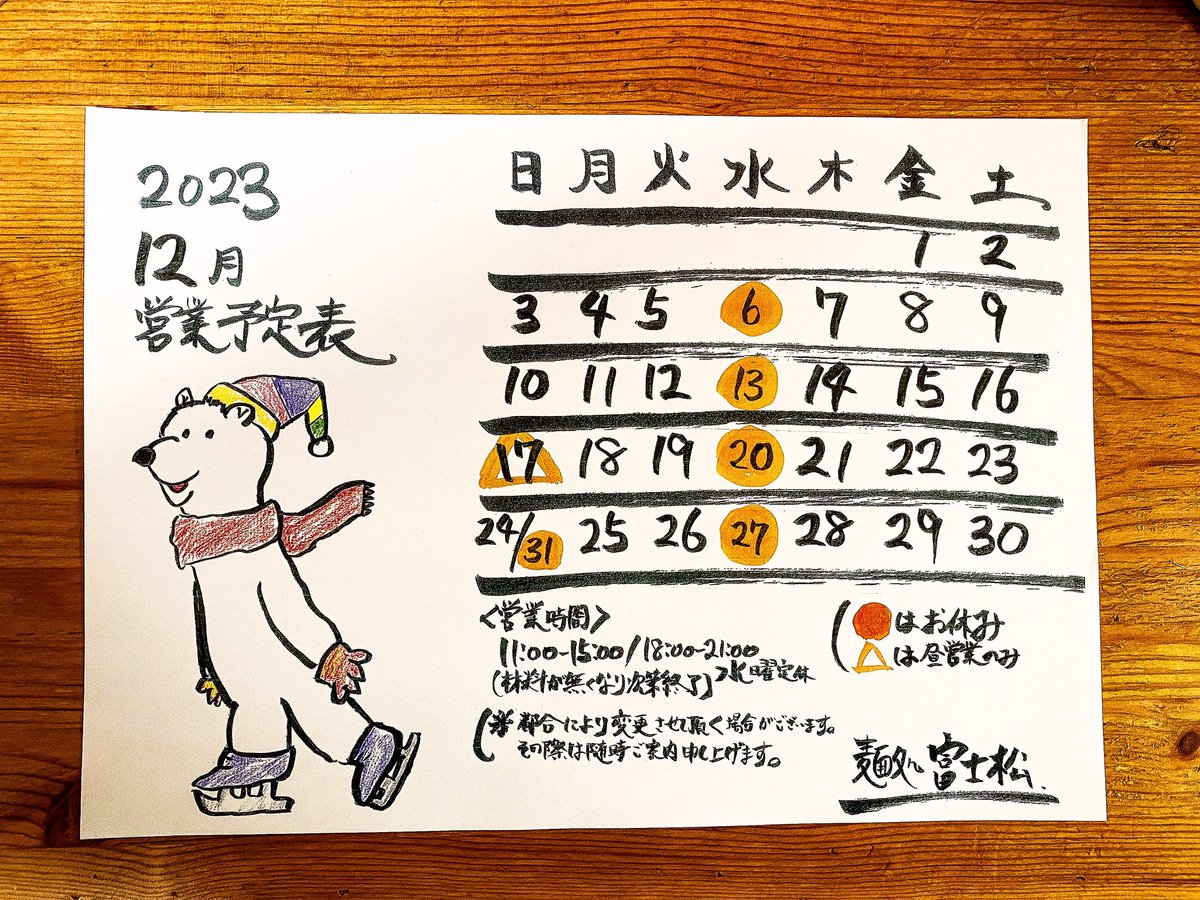 2023
12月
営業予定表
日 月 火 水 木 金 土
1 2
3 4 5 6 7 8 9
10 11 12 13 14 15 16
17 18 19 20 21 22 23
24/31 25 26 27 28 29 30
<営業時間>
11:00-15:00/18:00-21:00
(材料が無くなり次第終了) 水曜定休
※都合により変更させて頂く場合がございます。
その際は随時ご案内申し上げます。
はお休み
は昼営業のみ
麺処 富士松